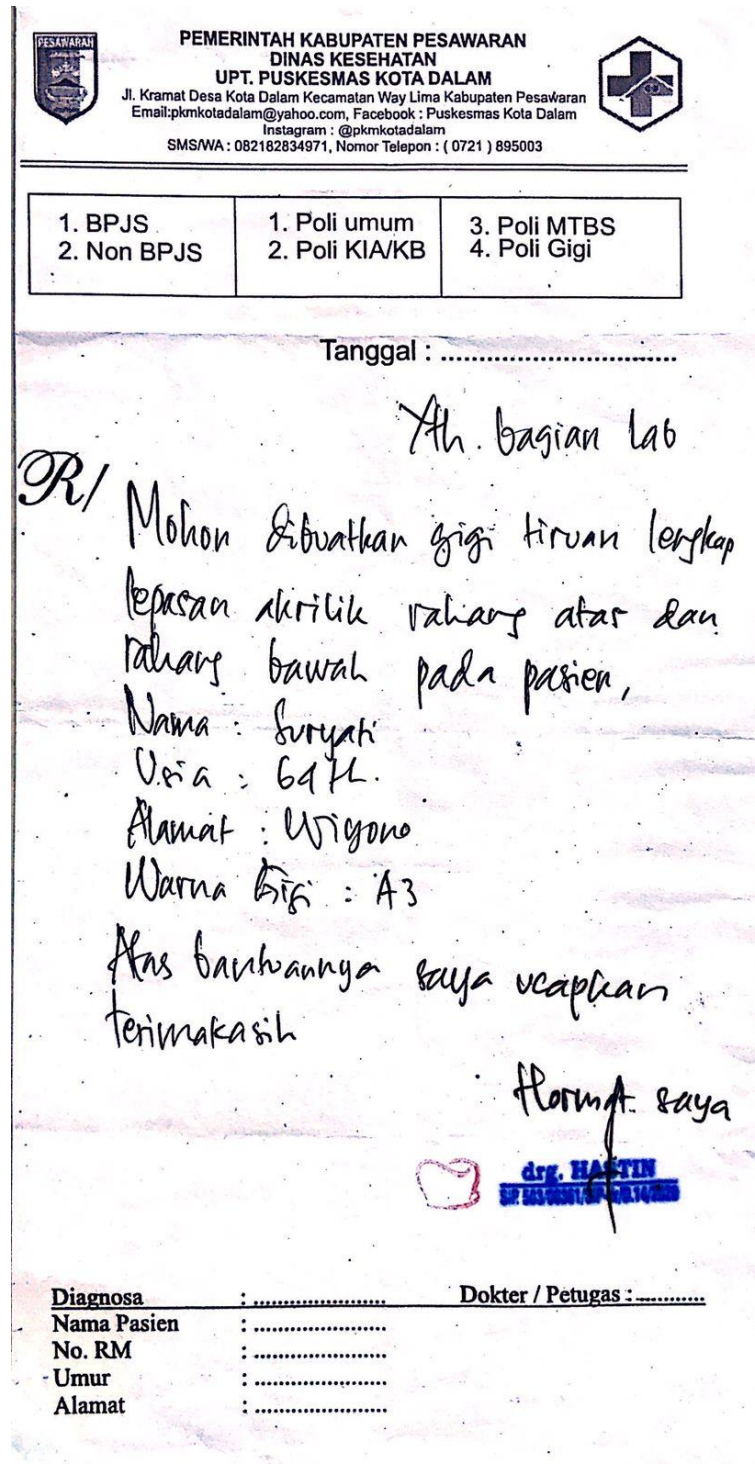 PESAWARAN
PEMERINTAH KABUPATEN PESAWARAN
DINAS KESEHATAN
UPT. PUSKESMAS KOTA DALAM
Jl. Kramat Desa Kota Dalam Kecamatan Way Lima Kabupaten Pesawaran
Email:pkmkotadalam@yahoo.com, Facebook : Puskesmas Kota Dalam
Instagram : @pkmkotadalam
SMS/WA : 082182834971, Nomor Telepon : ( 0721 ) 895003
1. BPJS
2. Non BPJS
1. Poli umum
2. Poli KIA/KB
3. Poli MTBS
4. Poli Gigi
Tanggal : ..............................
Yth. bagian Lab
R/
Mohon dibuatkan gigi tiruan lengkap
lepasan akrilik rahang atas dan
rahang bawah pada pasien,
Nama : Suryati
Usia : th.
Alamat :
Warna Gigi : A3
Atas bantuannya saya ucapkan
terimakasih
Hormat saya
drg. HASTIN
Diagnosa : ......................
Dokter / Petugas : ............
Nama Pasien : ......................
No. RM : ......................
Umur : ......................
Alamat : ......................